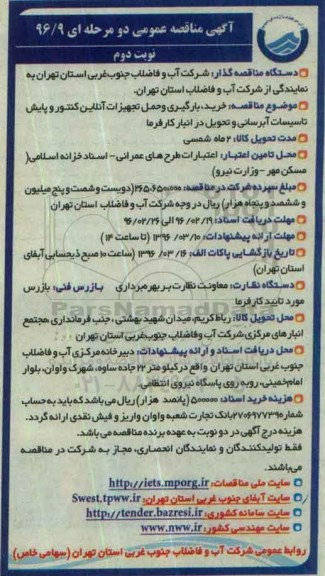 آگهی مناقصه عمومی دو مرحله ای ۹۶/۹
نوبت دوم
دستگاه مناقصه گذار: شرکت آب و فاضلاب جنوب غربی استان تهران به
نمایندگی از شرکت آب و فاضلاب استان تهران.
موضوع مناقصه: خرید، بارگیری وحمل تجهیزات آنلاین کنتور و پایش
تاسیسات آبرسانی و تحویل در انبار کارفرما
مدت تحویل کالا: ۲ماه شمسی
محل تامین اعتبار: اعتبارات طرح های عمرانی - اسناد خزانه اسلامی(
مسکن مهر - وزارت نیرو)
مبلغ سپرده شرکت در مناقصه: ۲۶۵،۶۵۰،۰۰۰(دویست وشصت و پنج میلیون
و ششصد و پنجاه هزار) ریال در وجه شرکت آب و فاضلاب استان تهران
مهلت دریافت اسناد: ۹۶/۰۲/۱۹ الی ۹۶/۰۲/۲۶
مهلت ارائه پیشنهادات: ۱۳۹۶/۰۳/۱۰ (تا ساعت ۱۴)
تاریخ بازگشایی پاکات الف: ۱۳۹۶/۰۳/۱۶ (ساعت ۱۰ صبح ذیحسابی آبفای
استان تهران)
دستگاه نظارت: معاونت نظارت بر بهره برداری بازرس فنی: بازرس
مورد تایید کارفرما
محل تحویل کالا: رباط کریم، میدان شهید بهشتی، جنب فرمانداری، مجتمع
انبارهای مرکزی شرکت آب وفاضلاب جنوب غربی استان تهران
محل دریافت اسناد و ارائه پیشنهادات: دبیرخانه مرکزی آب و فاضلاب
جنوب غربی استان تهران واقع در کیلو متر ۲۲ جاده ساوه، شهرک واوان، بلوار
امام خمینی، رو به روی پاسگاه نیروی انتظامی
هزینه خرید اسناد: ۵۰۰،۰۰۰ (پانصد هزار) ریال می باشد که باید به حساب
شماره ۲۷۰۶۹۷۷۳۹۰ بانک تجارت شعبه واوان واریز و فیش نقدی ارائه گردد.
هزینه درج آگهی در دو نوبت به عهده برنده مناقصه می باشد.
فقط تولیدکنندگان و نمایندگان انحصاری، مجاز به شرکت در مناقصه
می باشند.
سایت ملی مناقصات: http://iets.mporg.ir
سایت آبفای جنوب غربی استان تهران: Swest.tpww.ir
سایت سامانه کشوری: http://tender.bazresi.ir
سایت مهندسی کشور: www.nww.ir
روابط عمومی شرکت آب و فاضلاب جنوب غربی استان تهران (سهامی خاص)